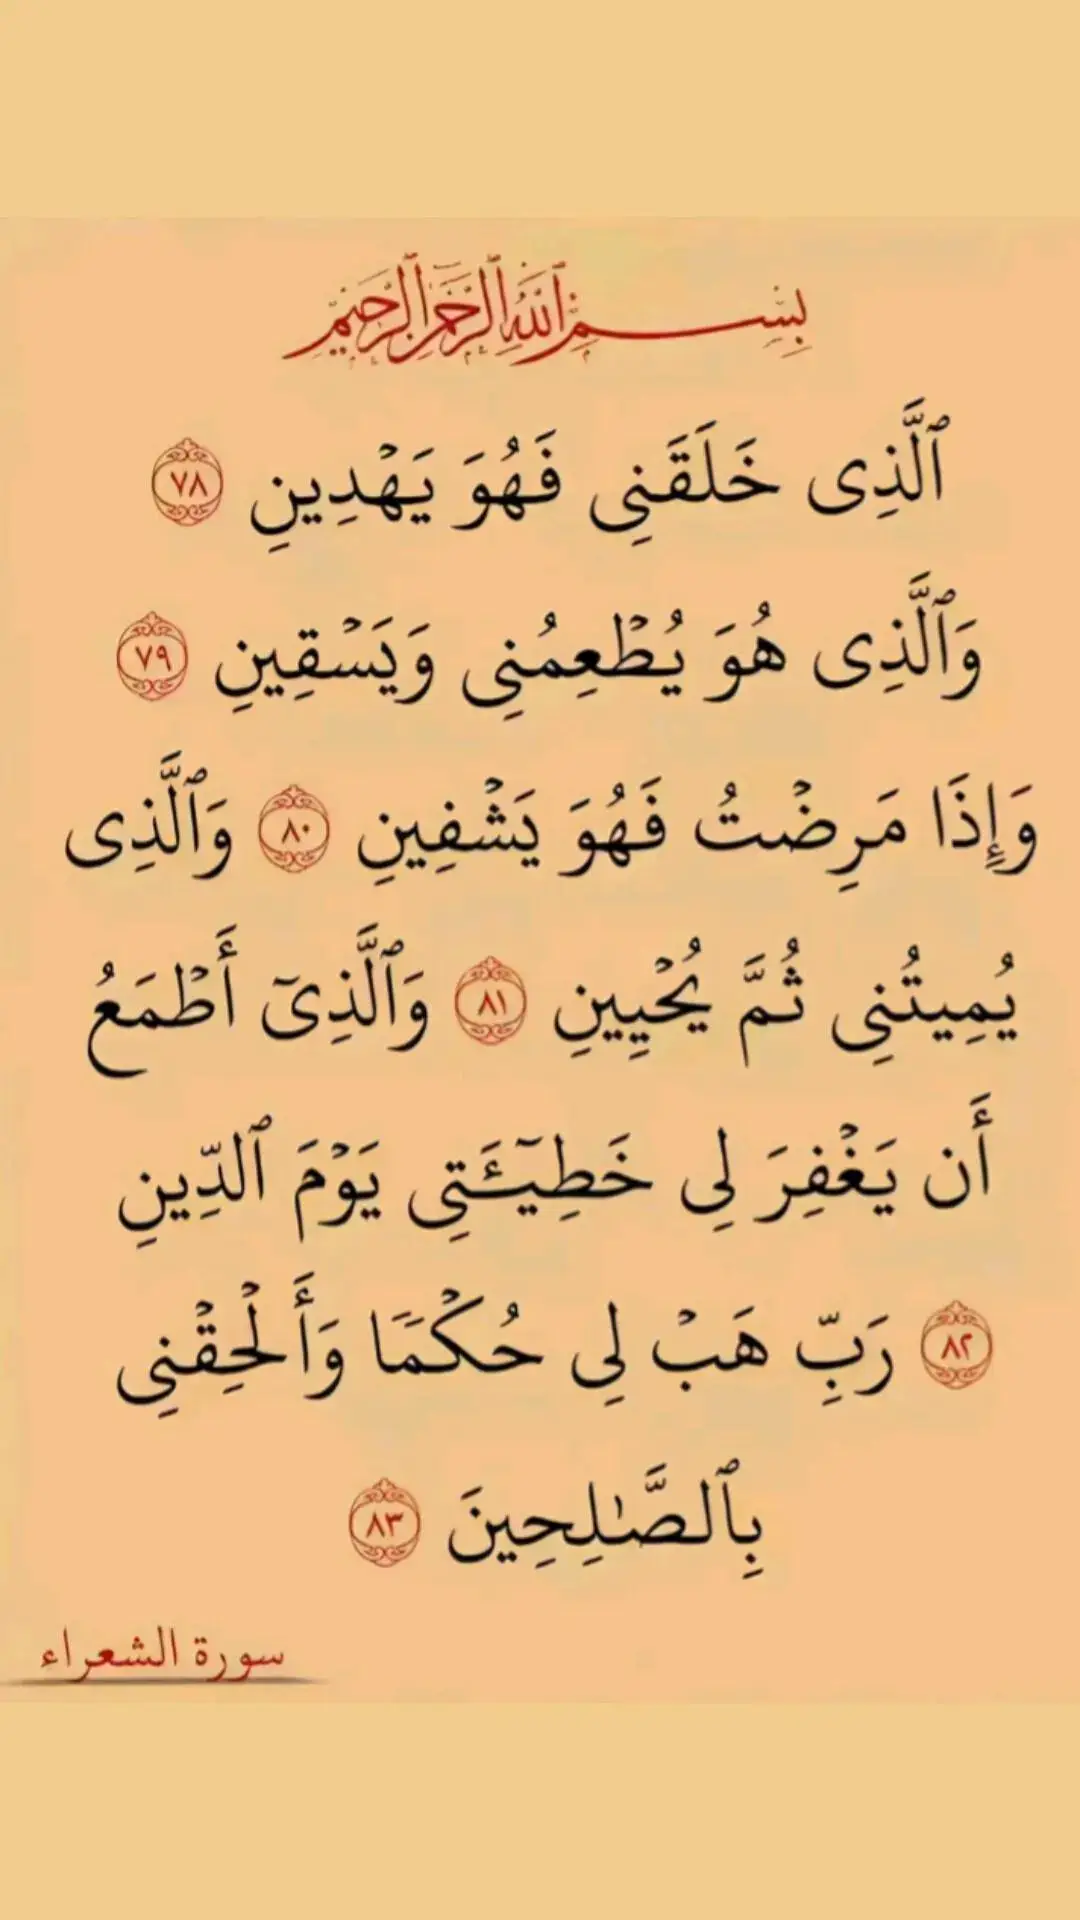 بِسْمِ ٱللَّهِ ٱلرَّحْمَٰنِ ٱلرَّحِيمِ
ٱلَّذِى خَلَقَنِى فَهُوَ يَهْدِينِ ٧٨
وَٱلَّذِى هُوَ يُطْعِمُنِى وَيَسْقِينِ ٧٩
وَإِذَا مَرِضْتُ فَهُوَ يَشْفِينِ ٨٠ وَٱلَّذِى
يُمِيتُنِى ثُمَّ يُحْيِينِ ٨١ وَٱلَّذِىٓ أَطْمَعُ
أَن يَغْفِرَ لِى خَطِيٓـَٔتِى يَوْمَ ٱلدِّينِ
٨٢ رَبِّ هَبْ لِى حُكْمًا وَأَلْحِقْنِى
بِٱلصَّٰلِحِينَ ٨٣
سورة الشعراء